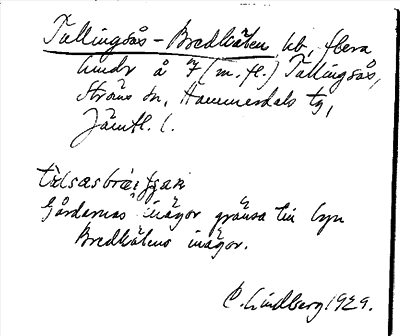 Tullingsås-Bredkälen, hb, flera
hmdr å 7 (m. fl.) Tullingsås,
Ströms sn, Hammerdals tg,
Jämtl. l.
Gårdarnas inägor gränsa till byn
Bredkälens inägor.
C. Lindberg 1929.